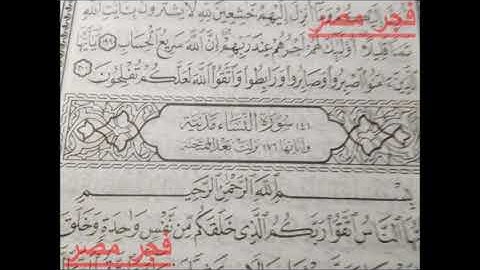 فجر مصر
أُنزِلَ إِلَيْهِمْ خَٰشِعِينَ لِلَّهِ لَا يَشْتَرُونَ بِـَٔايَٰتِ ٱللَّهِ
ثَمَنًا قَلِيلًا أُوْلَٰٓئِكَ لَهُمْ أَجْرُهُمْ عِندَ رَبِّهِمْ إِنَّ ٱللَّهَ سَرِيعُ ٱلْحِسَابِ ١٩٩ يَٰٓأَيُّهَا
ٱلَّذِينَ ءَامَنُوا۟ ٱصْبِرُوا۟ وَصَابِرُوا۟ وَرَابِطُوا۟ وَٱتَّقُوا۟ ٱللَّهَ لَعَلَّكُمْ تُفْلِحُونَ ٢٠٠
(٤) سورة النساء مدنية
وآياتها ١٧٦ نزلت بعد الممتحنة
بِسْمِ ٱللَّهِ ٱلرَّحْمَٰنِ ٱلرَّحِيمِ
ٱلنَّاسُ ٱتَّقُوا۟ رَبَّكُمُ ٱلَّذِى خَلَقَكُم مِّن نَّفْسٍ وَٰحِدَةٍ وَخَلَقَ
فجر مصر